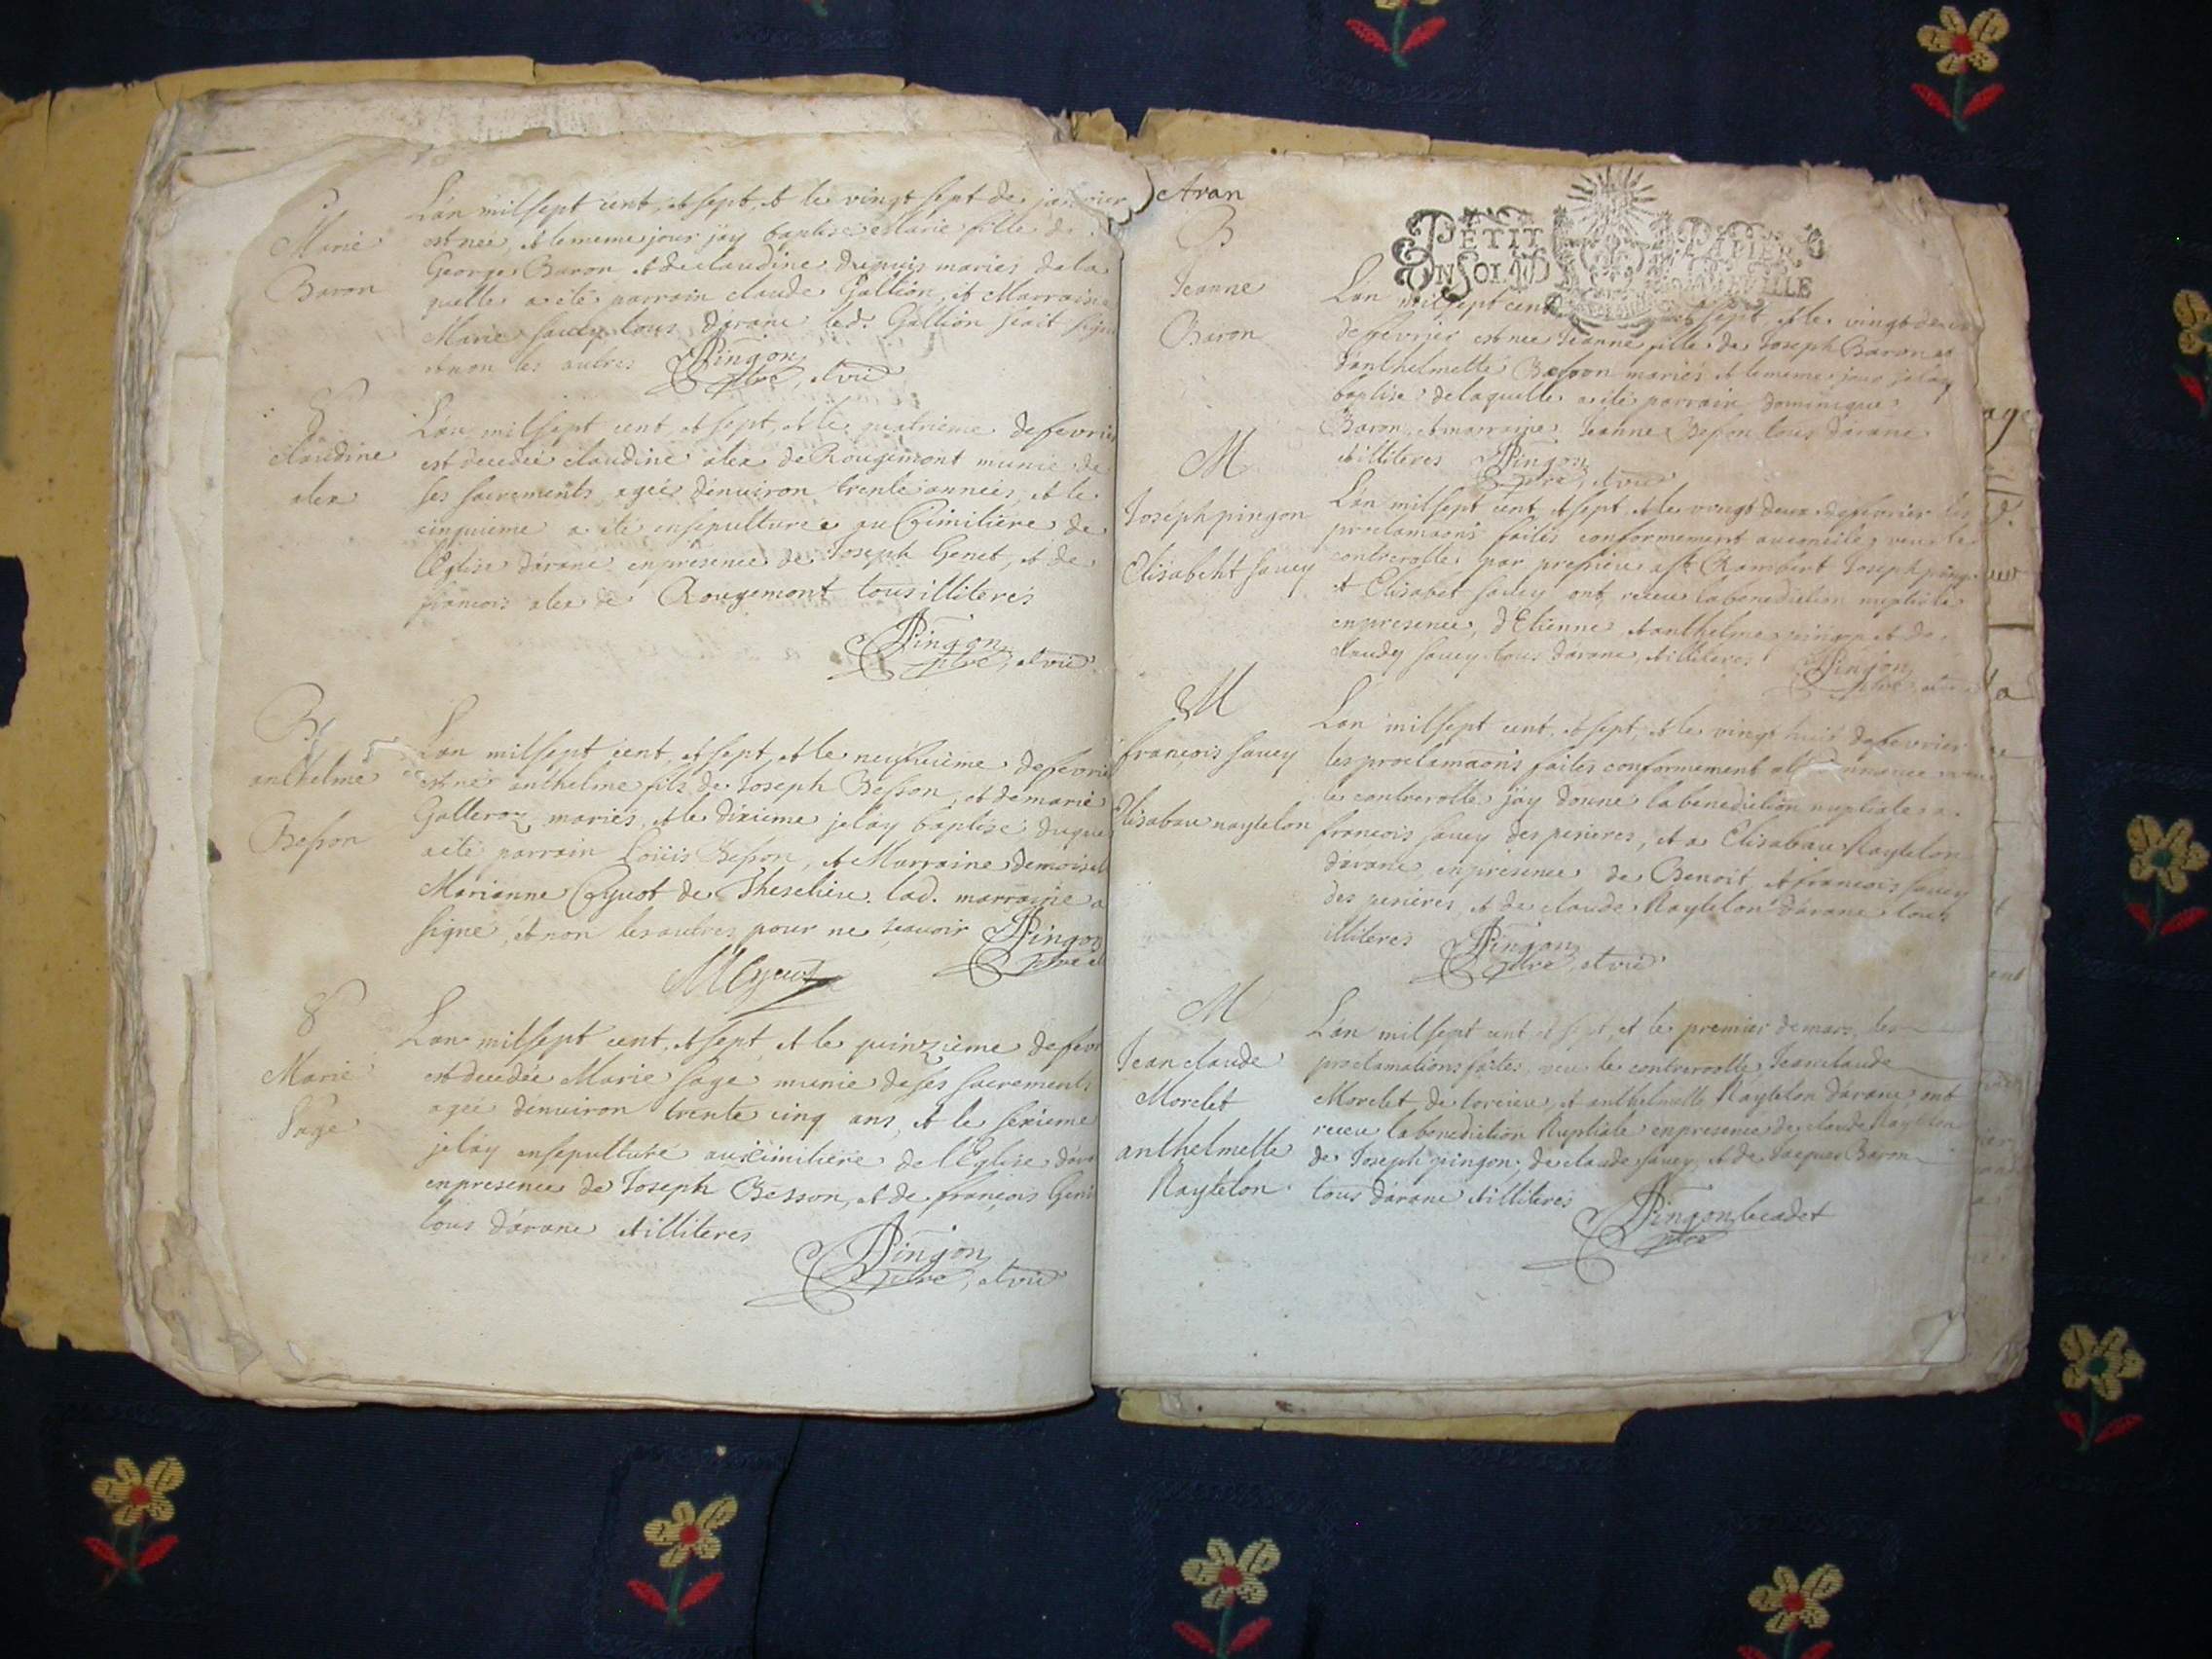 B
Marie
Baron
L'an mil sept cent, et sept, et le vingt sept de janvier
est née, et le meme jour j'ay baptisé Marie fille de
George Baron et de claudine dupuis mariés de la
quelle a été parrain claude Gallion, et Marraine
Marie savey tous d'arane led. Gallion scait signer
et non les autres Pingon
ptre, et vic
S
claudine
alex
L'an mil sept cent, et sept, et le quatrieme de fevrier
est decedée claudine alex de Rougemont munie de
ses sacrements, agée d'environ trente années, et le
cinquieme a été ensepulturée au Cimitiere de
l'Eglise d'arane en presence de Joseph Genet, et de
francois alex de Rougemont tous illiterés
Pingon
ptre, et vic
B
anthelme
Besson
L'an mil sept cent, et sept, et le neufvieme de fevrier
est né anthelme fils de Joseph Besson, et de marie
Galleroz mariés, et le dixieme je l'ay baptisé duquel
a été parrain Loüis Besson, et Marraine demoiselle
Marianne Cyuot de Thesehieu. lad. marraine a
signé, et non les autres pour ne scavoir Pingon
ptre et
S
Marie
Sage
L'an mil sept cent, et sept, et le quinzieme de fevr
est decedée Marie sage munie de ses sacrements
agée d'environ trente cinq ans, et le sexieme
je l'ay ensepulturé au cimitiere de l'Eglise d'ara
en presence de Joseph Besson, et de françois Genet
tous d'arane et illiteres
Pingon
ptre, et vic
Aran
PETIT PAPIER
UN SOL
B
Jeanne
Baron
L'an mil sept cent et sept et le vingt deux
de fevrier est née Jeanne fille de Joseph Baron et
d'anthelmette Besson mariés et le meme jour je l'ay
baptisé de laquelle a été parrain dominique
Baron, et marraine Jeanne Besson tous d'arane
et illiteres Pingon
ptre, et vic
M
Joseph pingon
Elisabeht savey
L'an mil sept cent, et sept, et le vingt deux de fevrier les
proclamaons faites conformement au concile, veu le
controrolle par Rambert Joseph pingon
et Elisabet savey ont receu la benediction nuptiale
en presence, d'Etienne et anthelme pingon et de
claudy savey tous d'arane, et illiteres Pingon
ptre
M
francois savey
Elisabau naytelon
L'an mil sept cent, et sept, et le vingt huit de fevrier
les proclamaons faites conformement a veu
le controrolle j'ay donné la benediction nuptiale a
francois savey des perieres, et a Elisabau Naytelon
d'arane, en presence de Benoit, et francois savey
des perieres, et de claude Naytelon d'arane tous
illiteres Pingon
ptre, et vic
M
Jean claude
Morelet
anthelmette
Naytelon
L'an mil sept cent et sept, et le premier de mars, les
proclamations faites, veu le controrolle Jean claude
Morelet de corcieu, et anthelmette Naytelon d'arane, ont
receu la benediction Nuptiale en presence de claude Naytelon
de Joseph pingon, de claude savey, et de Jacques Baron
tous d'arane et illiterés
Pingon le cadet
ptre